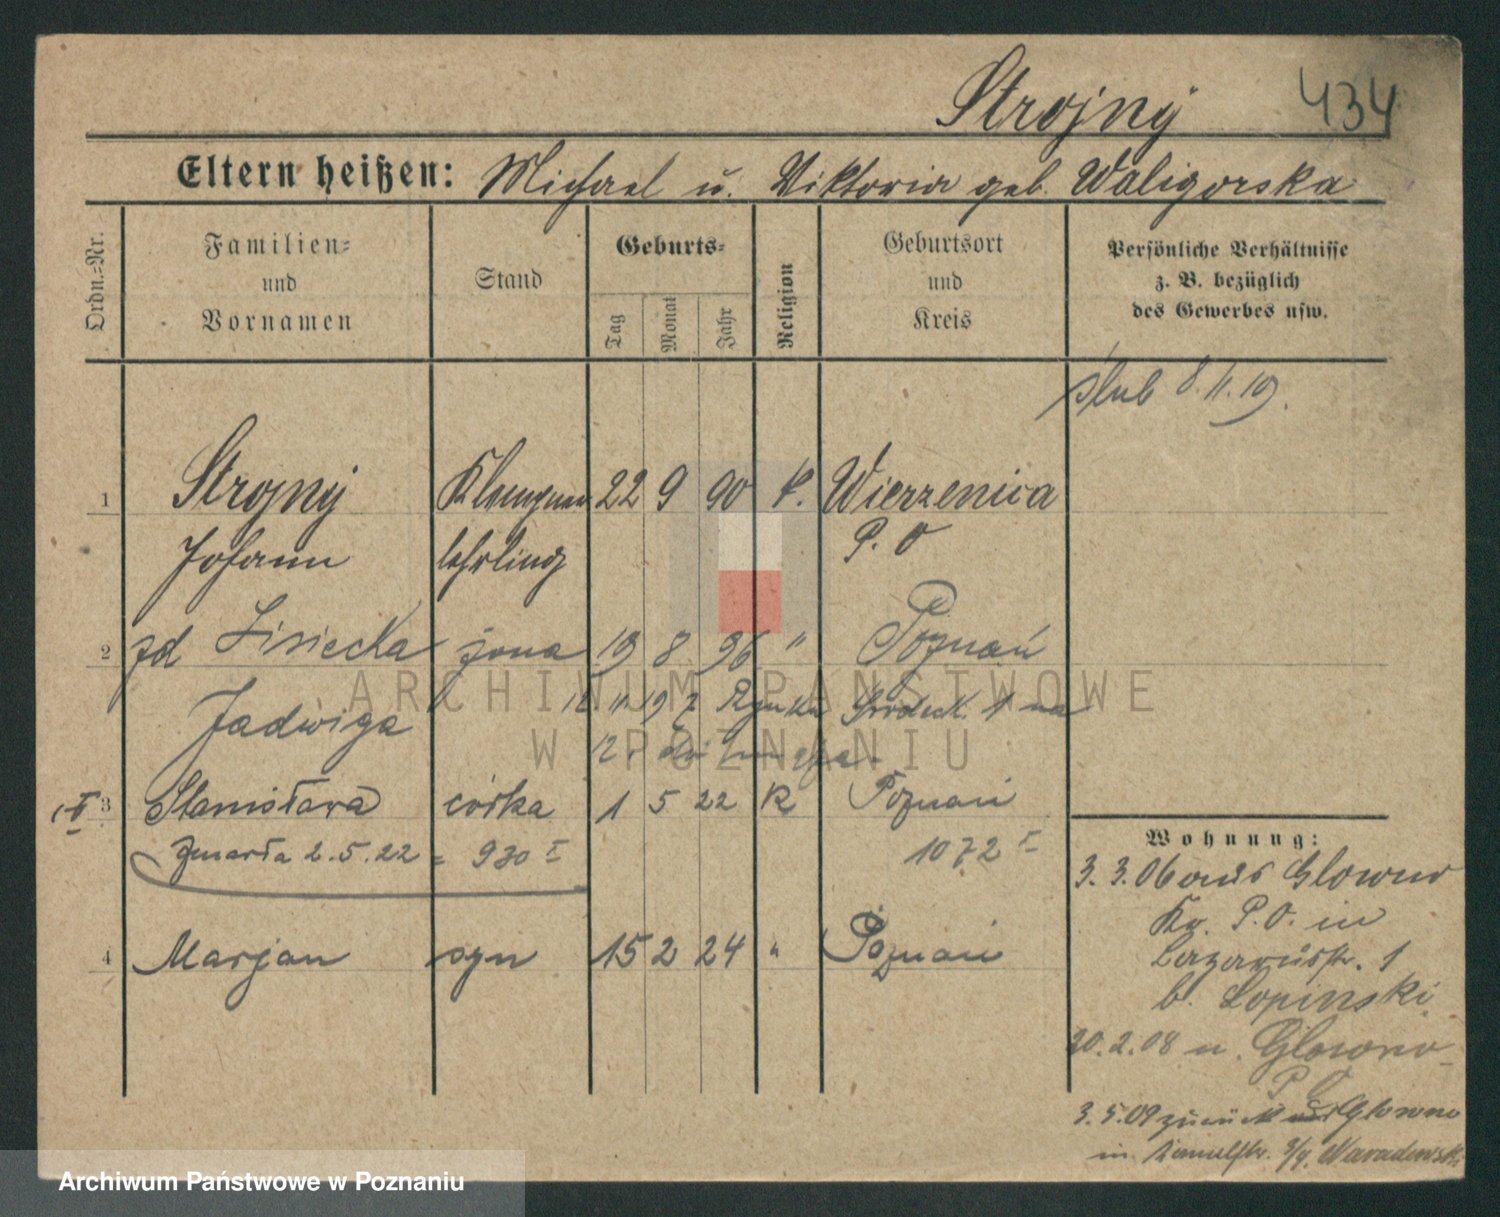 Strojny 434
Eltern heißen: Michael u. Viktoria geb. Waligorska
Ordn.-Nr.
Familien-
und
Vornamen
Stand
Geburts-
Tag
Monat
Jahr
Religion
Geburtsort
und
Kreis
Persönliche Verhältnisse
z. B. bezüglich
des Gewerbes usw.
ślub 8.11.19.
1 Strojny Klempner 22 9 90 k. Wierzenica
Johann lehrling P. O
2 zd Lisiecka żona 19 8 96 " Poznań
Jadwiga
3 Stanisława córka 1 5 22 K Poznań
Zmarła 2.5.22 = 930 I 1072 I
4 Marjan syn 15 2 24 " Poznań
Wohnung:
3. 3. 06 aus Glowno
Kr. P. O. in
Lazarusstr. 1
b. Lopinski
20. 2. 08 n. Glowno
P O
3. 5. 09 zurück aus Glowno
in
ARCHIWUM PAŃSTWOWE
W POZNANIU
Archiwum Państwowe w Poznaniu